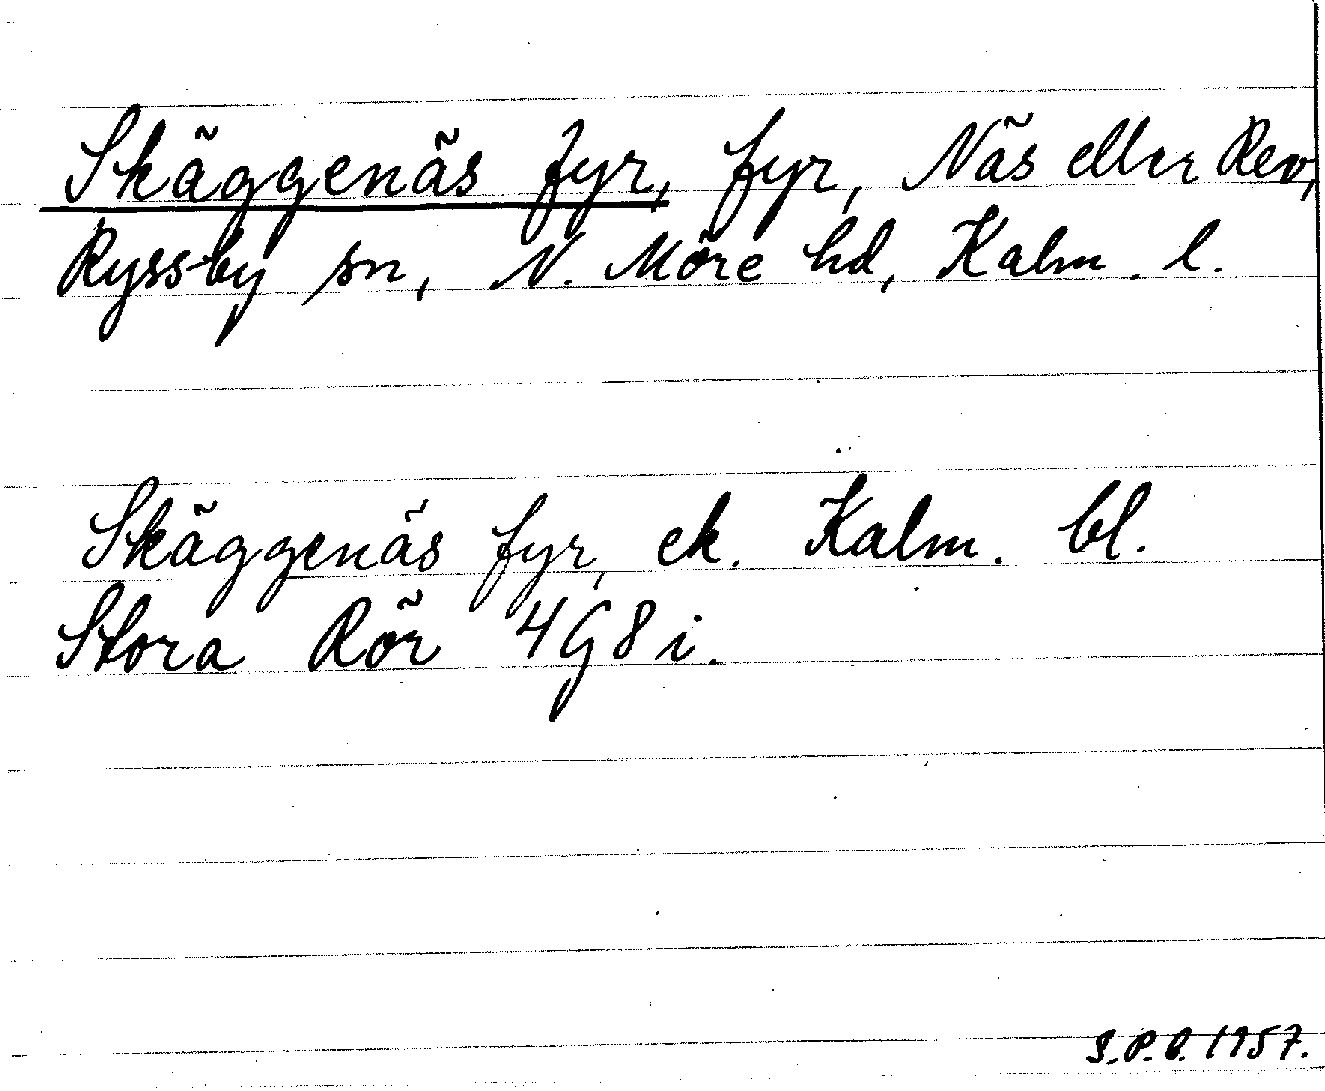 Skäggenäs fyr, fyr, Näs eller Rev,
Ryssby sn, N. Möre hd, Kalm. l.
Skäggenäs fyr, ek. Kalm. bl.
Stora Rör 4G8i.
1957.